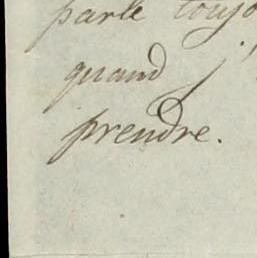 parle toujo
quand j'
prendre.